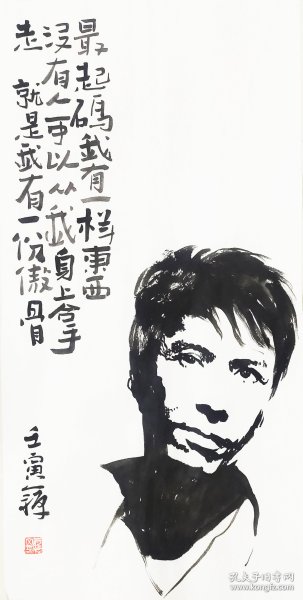 最起碼我有一样東西
没有人可以从我身上拿
走 就是我有一份傲骨
壬寅
孔夫子旧书网
www.kongfz.com